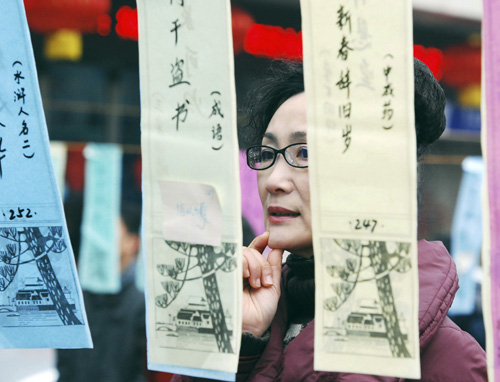 (水浒人名二)
252
干盗书
(成语)
新春辞旧岁
(中成药)
·247·